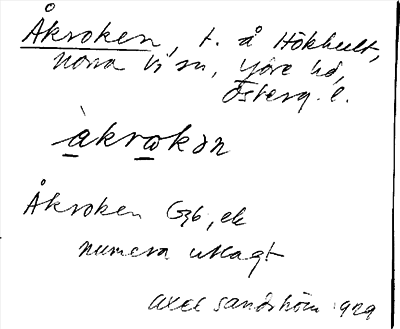 Åkroken, t. å Hökhult,
norra Vi sn, Ydre hd,
Österg. l.
åkrokən
Åkroken Gzb, ek
numera utlagt
Axel Sandström 1929